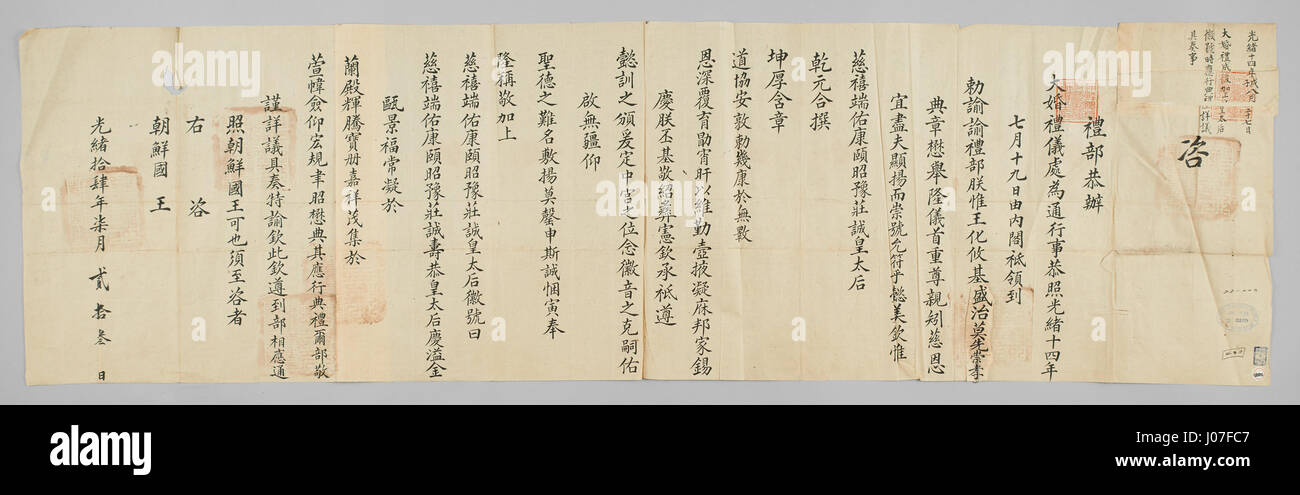 光緒十四年戊八月二十七日
大婚禮成後加上皇太后
徽號時應行典禮詳議
具奏事
咨
禮部恭辦
大婚禮儀處為通行事恭照光緒十四年
七月十九日由內閣祗領到
勅諭諭禮部朕惟王化攸基盛治莫先崇孝
典章懋舉隆儀首重尊親矧慈恩
宜盡夫顯揚而崇號允符乎懿美欽惟
慈禧端佑康頤昭豫莊誠皇太后
乾元合撰
坤厚含章
道協安敦勅幾康於無斁
恩深覆育勛宵旰以維勤壼掖凝庥邦家錫
慶朕丕基敬紹彝憲欽承祗遵
懿訓之頒爰定中宮之位念徽音之克嗣佑
啟無疆仰
聖德之難名敷揚莫罄申斯誠悃寅奉
隆稱敬加上
慈禧端佑康頤昭豫莊誠皇太后徽號曰
慈禧端佑康頤昭豫莊誠壽恭皇太后慶溢金
甌景福常凝於
蘭殿輝騰寶冊嘉祥茂集於
萱幃僉仰宏規聿昭懋典其應行典禮爾部敬
謹詳議具奏特諭欽此欽遵到部相應通
照朝鮮國王可也須至咨者
右咨
朝鮮國王
光緒拾肆年柒月貳拾叁日
alamy
Image ID: J07FC7
www.alamy.com